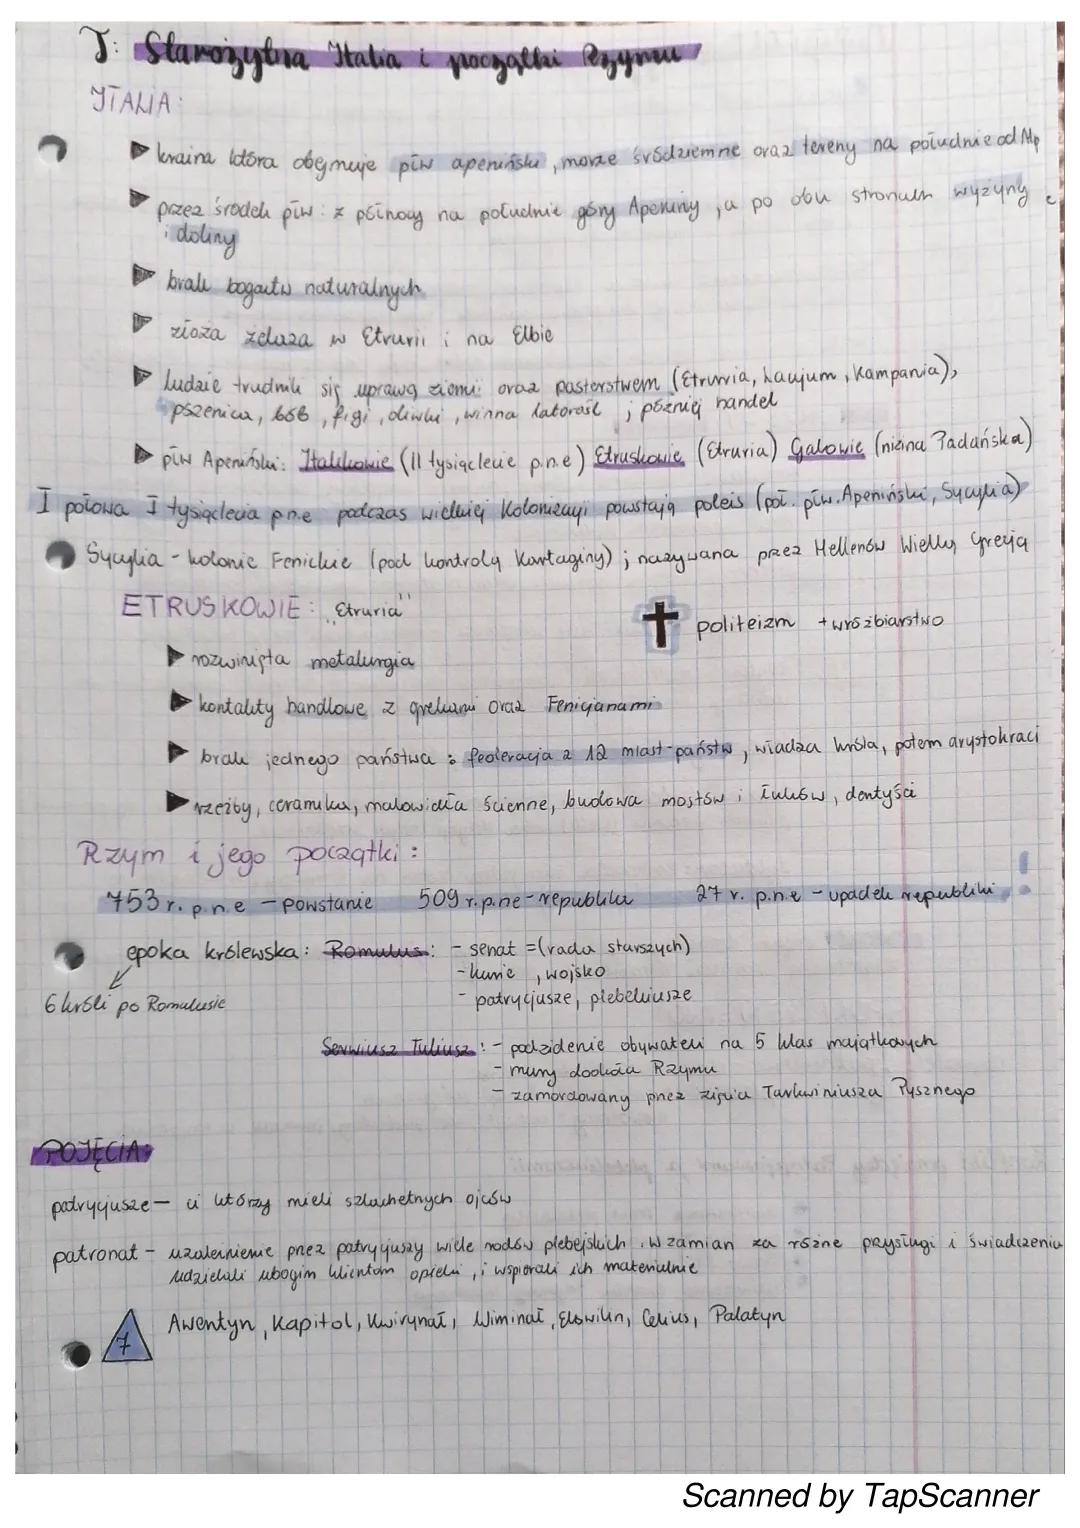 T: Starożytna Italia i początki Rzymu
ITALIA:
kraina która obejmuje płw apeniński, morze śródziemne oraz tereny na południe od Alp
przez środek płw: z północy na południe góry Apeniny, a po obu stronach wyżyny
i doliny
brak bogactw naturalnych
złoża żelaza w Etrurii i na Elbie
ludzie trudnili się uprawą ziemi oraz pasterstwem (Etruria, Lacjum, Kampania),
pszenica, bób, figi, oliwki, winna latorośl ; później handel
płw Apeniński: Italikowie (II tysiąclecie p.n.e) Etruskowie (Etruria) Galowie (nizina Padańska)
I połowa I tysiąclecia p.n.e podczas wielkiej kolonizacji powstają poleis (poł. płw. Apeniński, Sycylia)
Sycylia - kolonie Fenickie (pod kontrolą Kartaginy) ; nazywana przez Hellenów Wielką Grecją
ETRUSKOWIE: "Etruria"
politeizm + wróżbiarstwo
rozwinięta metalurgia
kontakty handlowe z grekami oraz Fenicjanami
brak jednego państwa : federacja z 12 miast-państw, władza króla, potem arystokracji
rzeźby, ceramika, malowidła ścienne, budowa mostów i łuków, dentyści
Rzym i jego początki:
753 r. p.n.e - powstanie 509 r.p.ne - republika 27 r. p.n.e - upadek republiki !
epoka królewska: Romulus: - senat = (rada starszych)
- kurie, wojsko
6 króli po Romulusie
- patrycjusze, plebeiusze
Serwiusz Tuliusz: - podzidenie obywateli na 5 klas majątkowych
- mury dookoła Rzymu
- zamordowany przez zięcia Tarkwiniusza Pysznego
POJĘCIA:
patrycjusze - ci którzy mieli szlachetnych ojców
patronat - uzależnienie przez patrycjuszy wiele rodów plebejskich. W zamian za różne przysługi i świadczenia
udzielali ubogim klientom opieki, i wspierali ich materialnie
7 Awentyn, Kapitol, Kwirynał, Wiminał, Eskwilin, Celius, Palatyn
Scanned by TapScanner